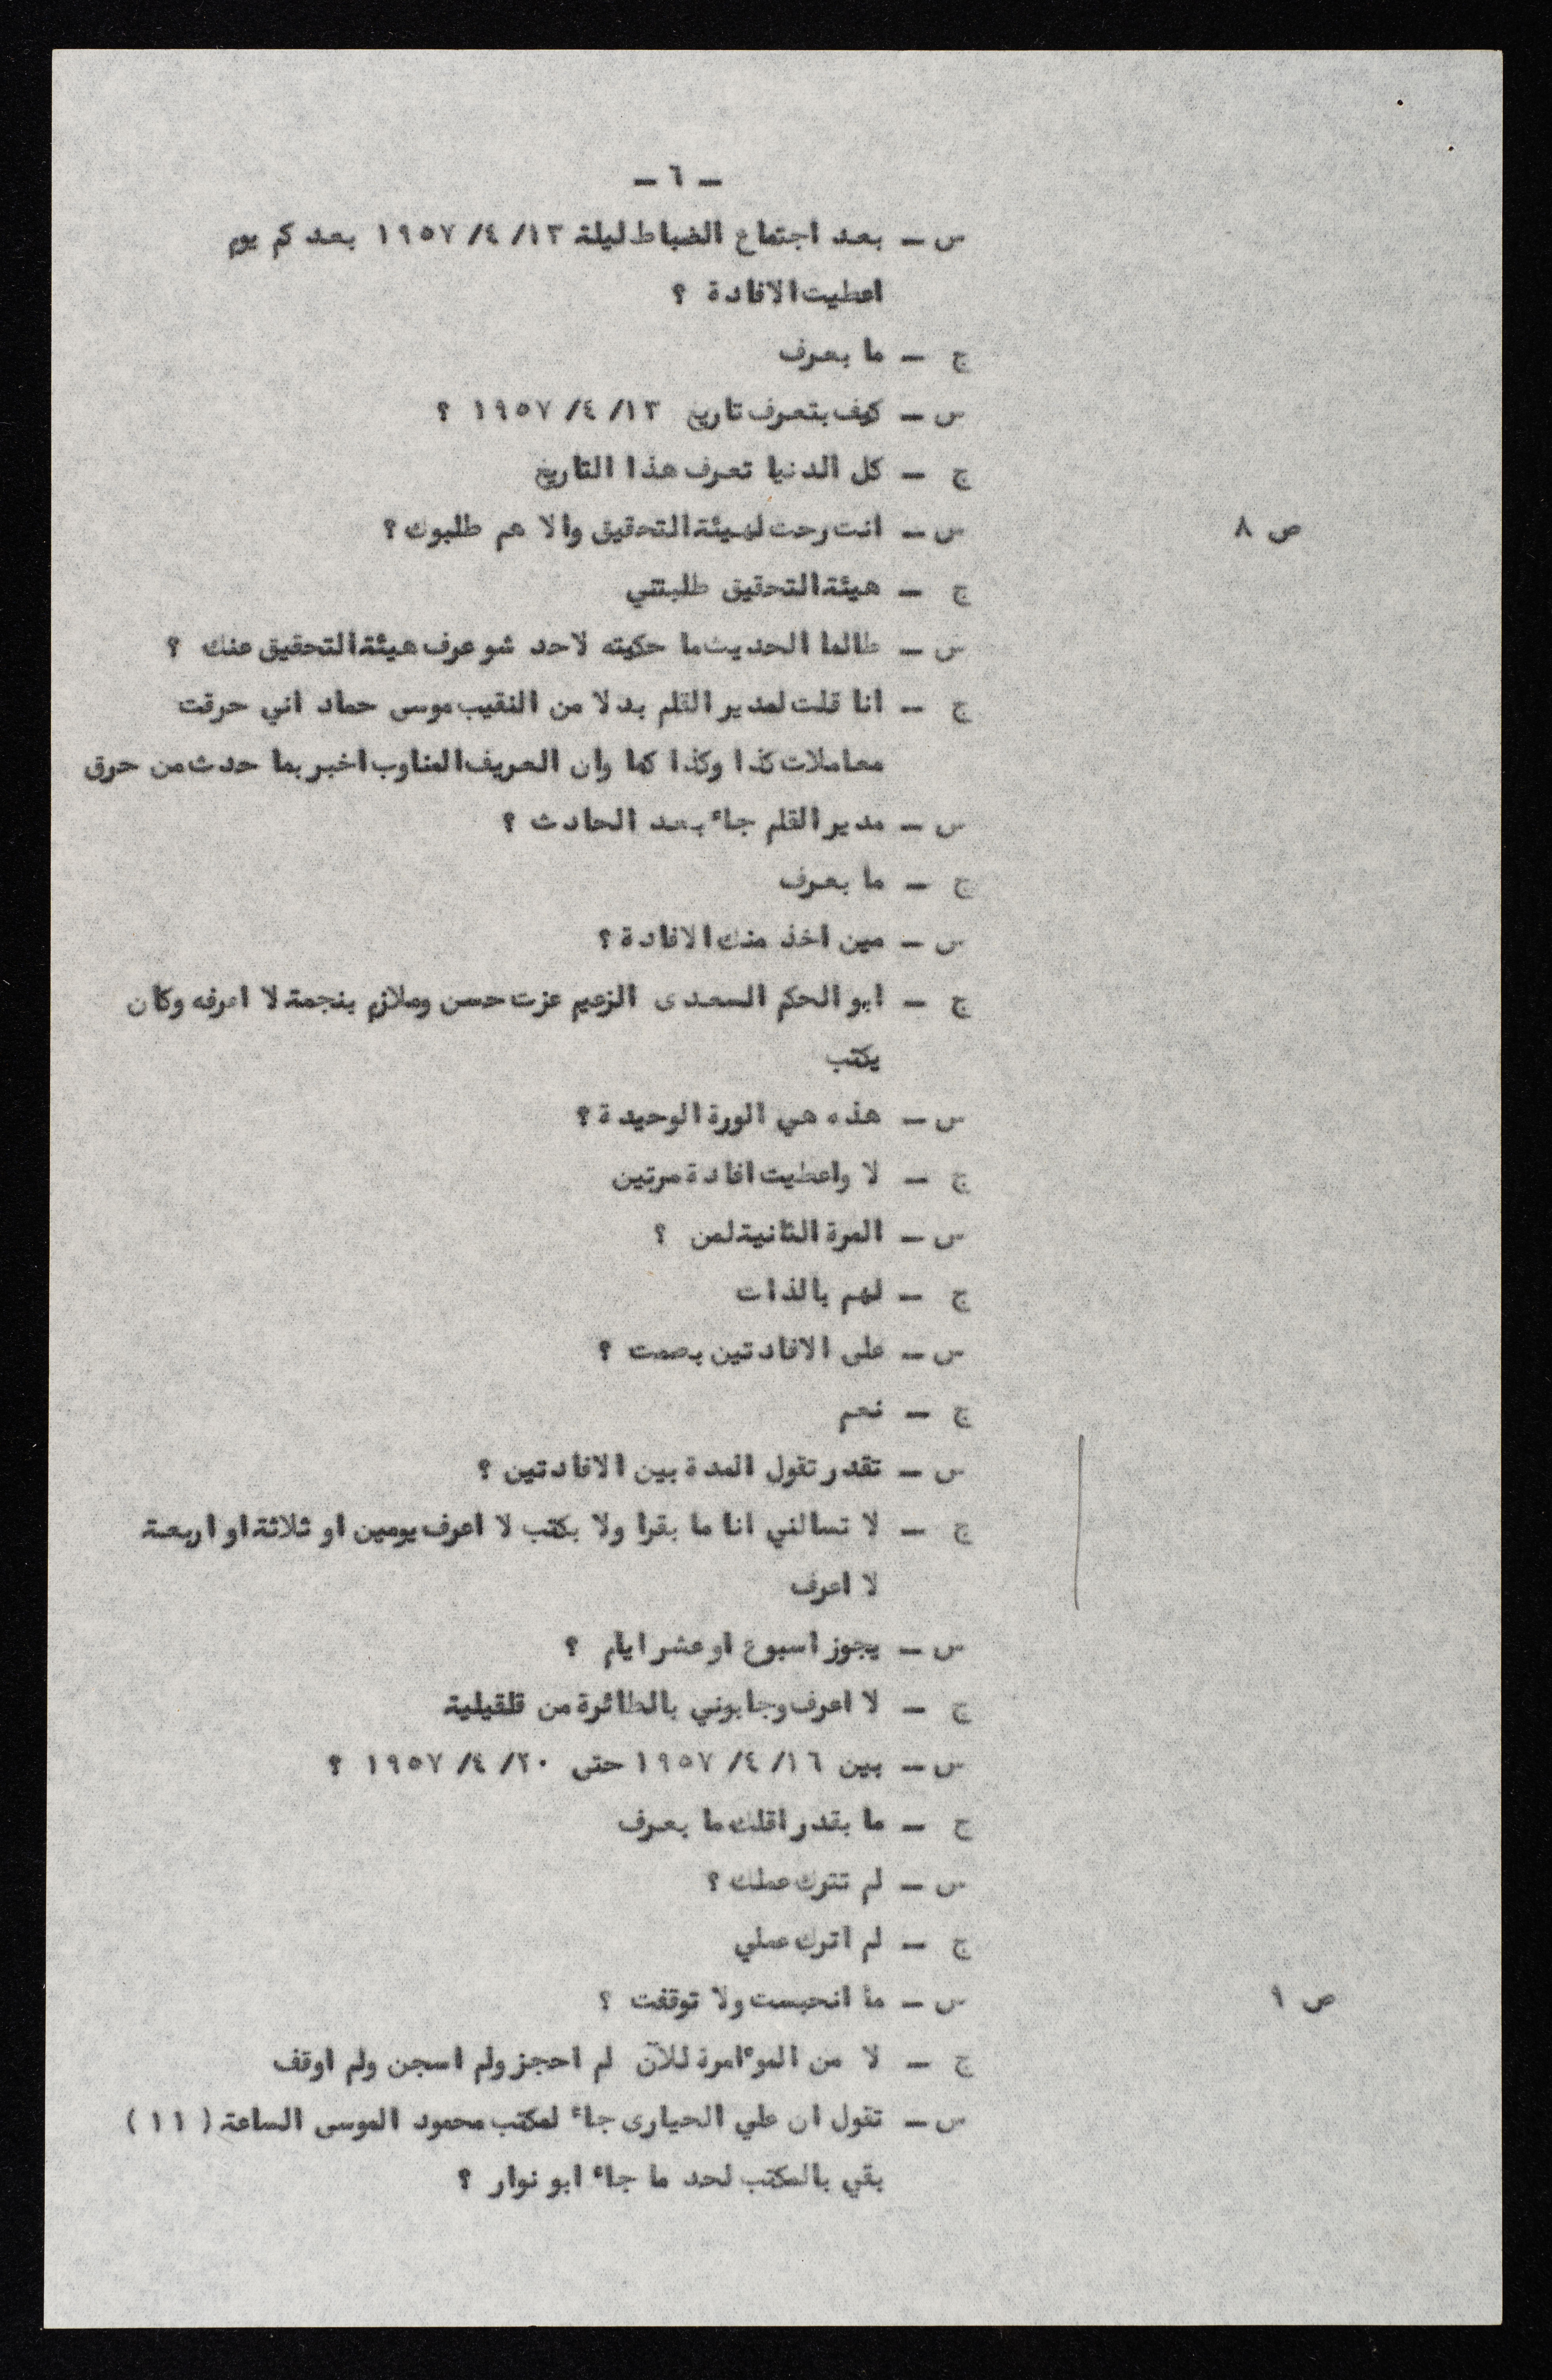 ـ ٦ ـ
س ـ بعد اجتماع الضباط ليلة ١٣/ ٤/ ١٩٥٧ بعد كم يوم
اعطيت الافادة ؟
ج ـ ما بعرف
س ـ كيف بتعرف تاريخ ١٣/ ٤/ ١٩٥٧ ؟
ج ـ كل الدنيا تعرف هذا التاريخ
ص ٨ س ـ انت رحت لهيئة التحقيق والا هم طلبوك ؟
ج ـ هيئة التحقيق طلبتني
س ـ طالما الحديث ما حكيته لاحد شو عرف هيئة التحقيق عنك ؟
ج ـ انا قلت لمدير القلم بدلا من النقيب موسى حماد اني حرقت
معاملات كذا وكذا كما وان العريف المناوب اخبر بما حدث من حرق
س ـ مدير القلم جاء بعد الحادث ؟
ج ـ ما بعرف
س ـ مين اخذ منك الافادة ؟
ج ـ ابو الحكم السعدى الزعيم عزت حسن وملازم بنجمة لا اعرفه وكان
يكتب
س ـ هذه هي الورة الوحيدة ؟
ج ـ لا واعطيت افادة مرتين
س ـ المرة الثانية لمن ؟
ج ـ لهم بالذات
س ـ على الافادتين بصمت ؟
ج ـ نعم
س ـ تقدر تقول المدة بين الافادتين ؟
ج ـ لا تسالني انا ما بقرا ولا بكتب لا اعرف يومين او ثلاثة او اربعة
لا اعرف
س ـ يجوز اسبوع او عشر ايام ؟
ج ـ لا اعرف وجابوني بالطائرة من قلقيلية
س ـ بين ١٦/ ٤/ ١٩٥٧ حتى ٢٠/ ٤/ ١٩٥٧ ؟
ج ـ ما بقدر اقلك ما بعرف
س ـ لم تترك عملك ؟
ج ـ لم اترك عملي
ص ٩ س ـ ما انحبست ولا توقفت ؟
ج ـ لا من الموءامرة للآن لم احجز ولم اسجن ولم اوقف
س ـ تقول ان علي الحيارى جاء لمكتب محمود الموسى الساعة (١١)
بقي بالمكتب لحد ما جاء ابو نوار ؟